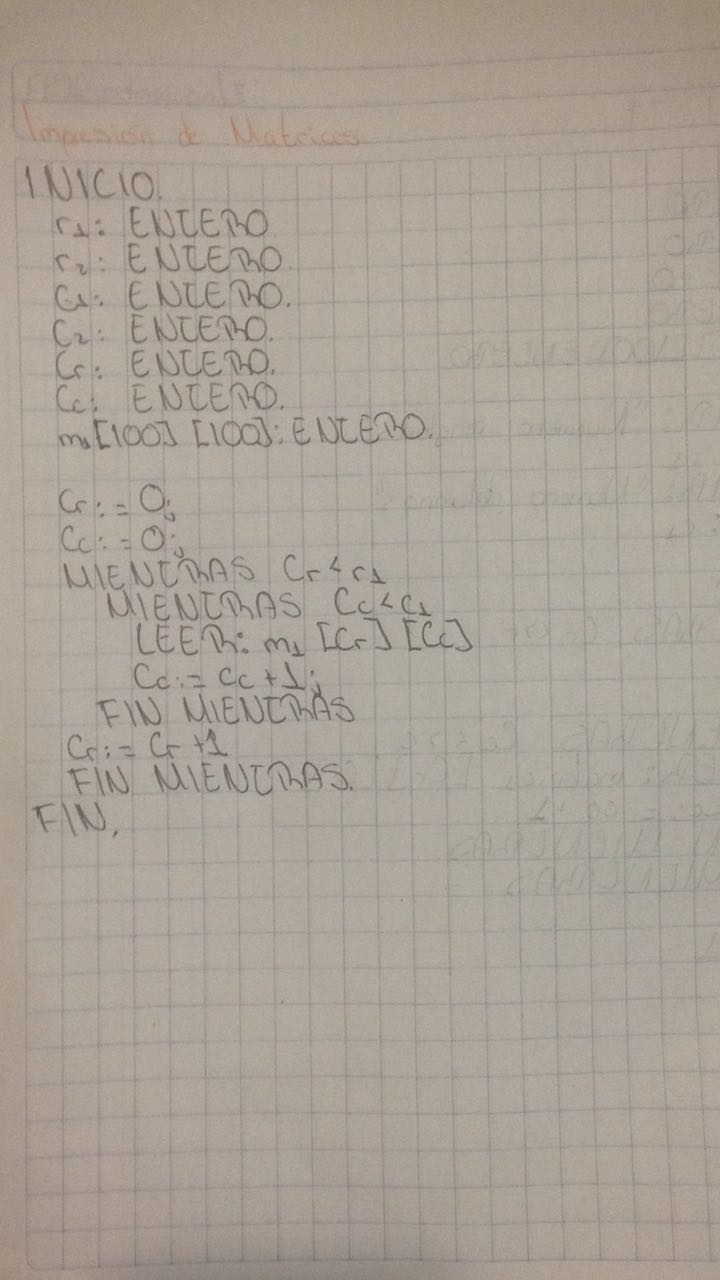 Impresión de Matrices
INICIO.
r1: ENTERO
r2: ENTERO.
C1: ENTERO.
C2: ENTERO.
Cr: ENTERO.
Cc: ENTERO.
m1[100] [100]: ENTERO.
Cr:=0;
Cc:=0;
MIENTRAS Cr<r1
MIENTRAS Cc<c1
LEER: m1 [Cr] [Cc]
Cc:= Cc+1;
FIN MIENTRAS
Cr:= Cr+1
FIN MIENTRAS.
FIN.